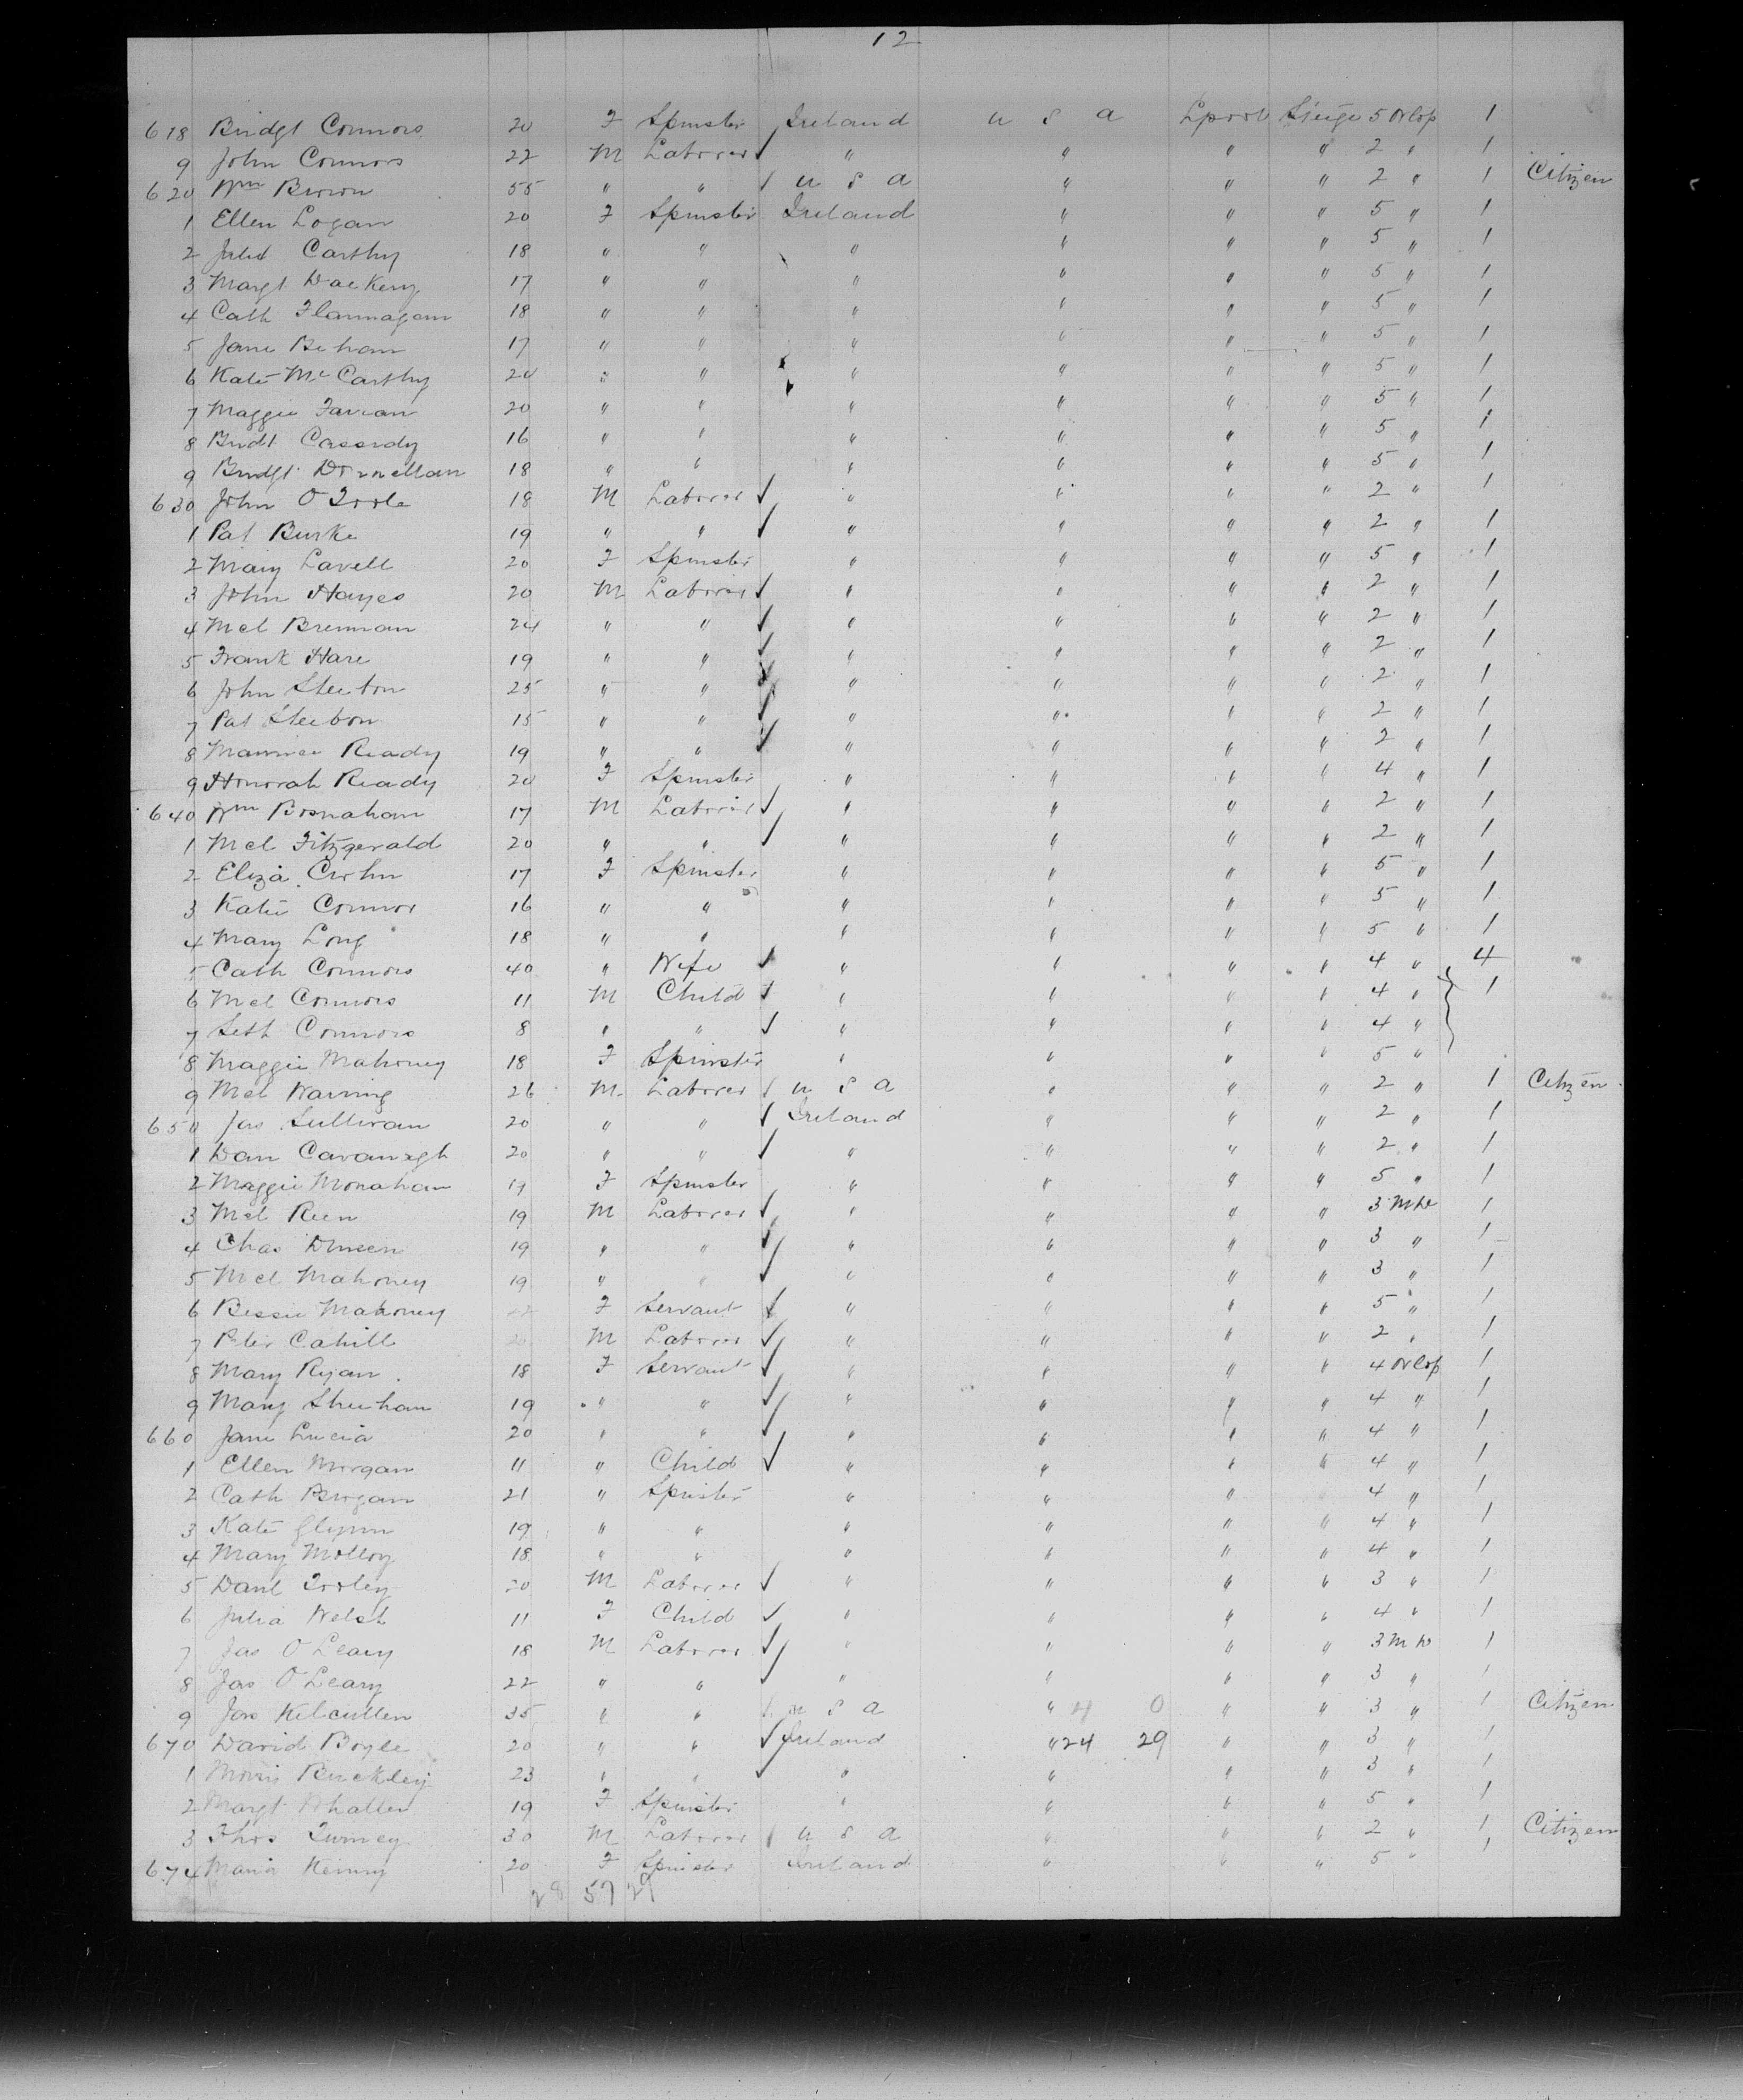 12
618 Bridgt Connors 20 F Spinster Ireland U S A Lpool St'ge 5 Orlop 1
9 John Connors 22 M Laborer ✓ " " " " 2 " 1
620 Wm Brown 55 " " / U S A " " " 2 " 1 Citizen
1 Ellen Logan 20 F Spinster Ireland " " " 5 " 1
2 Carthy 18 " " " " " " 5 " 1
3 Margt 17 " " " " " " 5 " 1
4 Cath Flannagan 18 " " " " " " 5 " 1
5 Jane Behan 17 " " " " " " 5 " 1
6 Kate McCarthy 20 " " " " " " 5 " 1
7 Maggie 20 " " " " " " 5 " 1
8 Bridt Cassidy 16 " " " " " " 5 " 1
9 Bridgt Donnellan 18 " " " " " " 5 " 1
630 John O Toole 18 M Laborer ✓ " " " " 2 " 1
1 Pat Burke 19 " " ✓ " " " " 2 " 1
2 Mary Lavell 20 F Spinster " " " " 5 " 1
3 John Hayes 20 M Laborer ✓ " " " " 2 " 1
4 Mcl Brennan 24 " " ✓ " " " " 2 " 1
5 Frank Hare 19 " " ✓ " " " " 2 " 1
6 John Sleebon 25 " " ✓ " " " " 2 " 1
7 Pat Sleebon 15 " " ✓ " " " " 2 " 1
8 Maurice Ready 19 " " ✓ " " " " 2 " 1
9 Honorah Ready 20 F Spinster " " " " 4 " 1
640 Wm Bosnahan 17 M Laborer ✓ " " " " 2 " 1
1 Mcl Fitzgerald 20 " " ✓ " " " " 2 " 1
2 Eliza 17 F Spinster " " " " 5 " 1
3 Katie Connor 16 " " " " " " 5 " 1
4 Mary Long 18 " " " " " " 5 " 1
5 Cath Connors 40 " Wife ✓ " " " " 4 " 4
6 Mcl Connors 11 M Child ✓ " " " " 4 " 1
7 Connors 8 " " ✓ " " " " 4 "
8 Maggie Mahoney 18 F Spinster " " " " 5 "
9 Mcl Warring 26 M Laborer / U S A " " " 2 " 1 Citizen
650 Jas Sullivan 20 " " ✓ Ireland " " " 2 " 1
1 Dan Cavanagh 20 " " ✓ " " " " 2 " 1
2 Maggie Monahan 19 F Spinster " " " " 5 " 1
3 Mcl Reen 19 M Laborer ✓ " " " " 3 1
4 Chas Dineen 19 " " ✓ " " " " 3 " 1
5 Mcl Mahoney 19 " " ✓ " " " " 3 " 1
6 Bessie Mahoney 22 F Servant ✓ " " " " 5 " 1
7 Peter Cahill 20 M Laborer ✓ " " " " 2 " 1
8 Mary Ryan 18 F Servant ✓ " " " " 4 Orlop 1
9 Mary Sheehan 19 " " ✓ " " " " 4 " 1
660 Jane Lucia 20 " " ✓ " " " " 4 " 1
1 Ellen Morgan 11 " Child ✓ " " " " 4 " 1
2 Cath Brogan 21 " Spinster " " " " 4 " 1
3 Kate Glynn 19 " " " " " " 4 " 1
4 Mary Molloy 18 " " " " " " 4 " 1
5 Danl Tooley 20 M Laborer ✓ " " " " 3 " 1
6 Julia Welsh 11 F Child ✓ " " " " 4 " 1
7 Jas O Leary 18 M Laborer ✓ " " " " 3 1
8 Jas O Leary 22 " " ✓ " " " " 3 " 1
9 Jas Kilcullen 35 " " / U S A " 4 0 " " 3 " 1 Citizen
670 David Boyle 20 " " ✓ Ireland " 24 29 " " 3 " 1
1 Morris Buckley 23 " " ✓ " " " " 3 " 1
2 Margt Whallen 19 F Spinster " " " " 5 " 1
3 Thos Twiney 30 M Laborer / U S A " " " 2 " 1 Citizen
674 Maria Kenny 20 F Spinster Ireland " " " 5 " 1
28 57 29